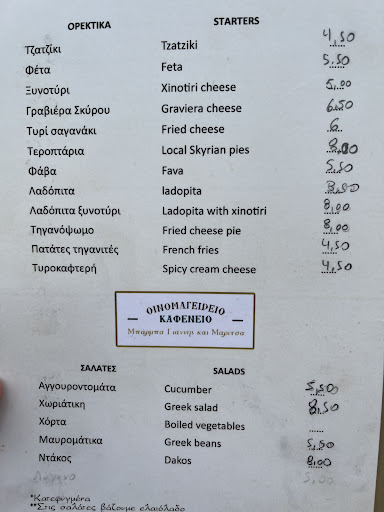 ΟΡΕΚΤΙΚΑ STARTERS
Τζατζίκι Tzatziki 4,50
Φέτα Feta 5,50
Ξυνοτύρι Xinotiri cheese 5,00
Γραβιέρα Σκύρου Graviera cheese 6,50
Τυρί σαγανάκι Fried cheese 6
Τεροπτάρια Local Skyrian pies 8,00
Φάβα Fava 5,50
Λαδόπιτα ladopita
Λαδόπιτα ξυνοτύρι Ladopita with xinotiri 8,00
Τηγανόψωμο Fried cheese pie 8,00
Πατάτες τηγανιτές French fries 4,50
Τυροκαφτερή Spicy cream cheese 4,50
ΟΙΝΟΜΑΓΕΙΡΕΙΟ
ΚΑΦΕΝΕΙΟ
Μπάρμπα Γιαννης και Μαριτσα
ΣΑΛΑΤΕΣ SALADS
Αγγουροντομάτα Cucumber 5,50
Χωριάτικη Greek salad 8,50
Χόρτα Boiled vegetables ......
Μαυρομάτικα Greek beans 5,50
Ντάκος Dakos 8,00
5,00
*Κατεψυγμένα
**Στις σαλάτες βάζουμε ελαιόλαδο